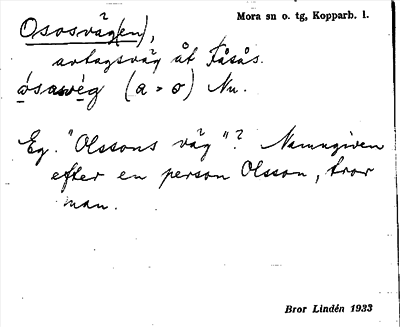 Ososväg(en),
Mora sn o. tg, Kopparb. l.
avtagsväg åt Fåsås.
ósasvég (a = o) Nu.
Eg. "Olssons väg"? Namngiven
efter en person Olsson, tror
man.
Bror Lindén 1933